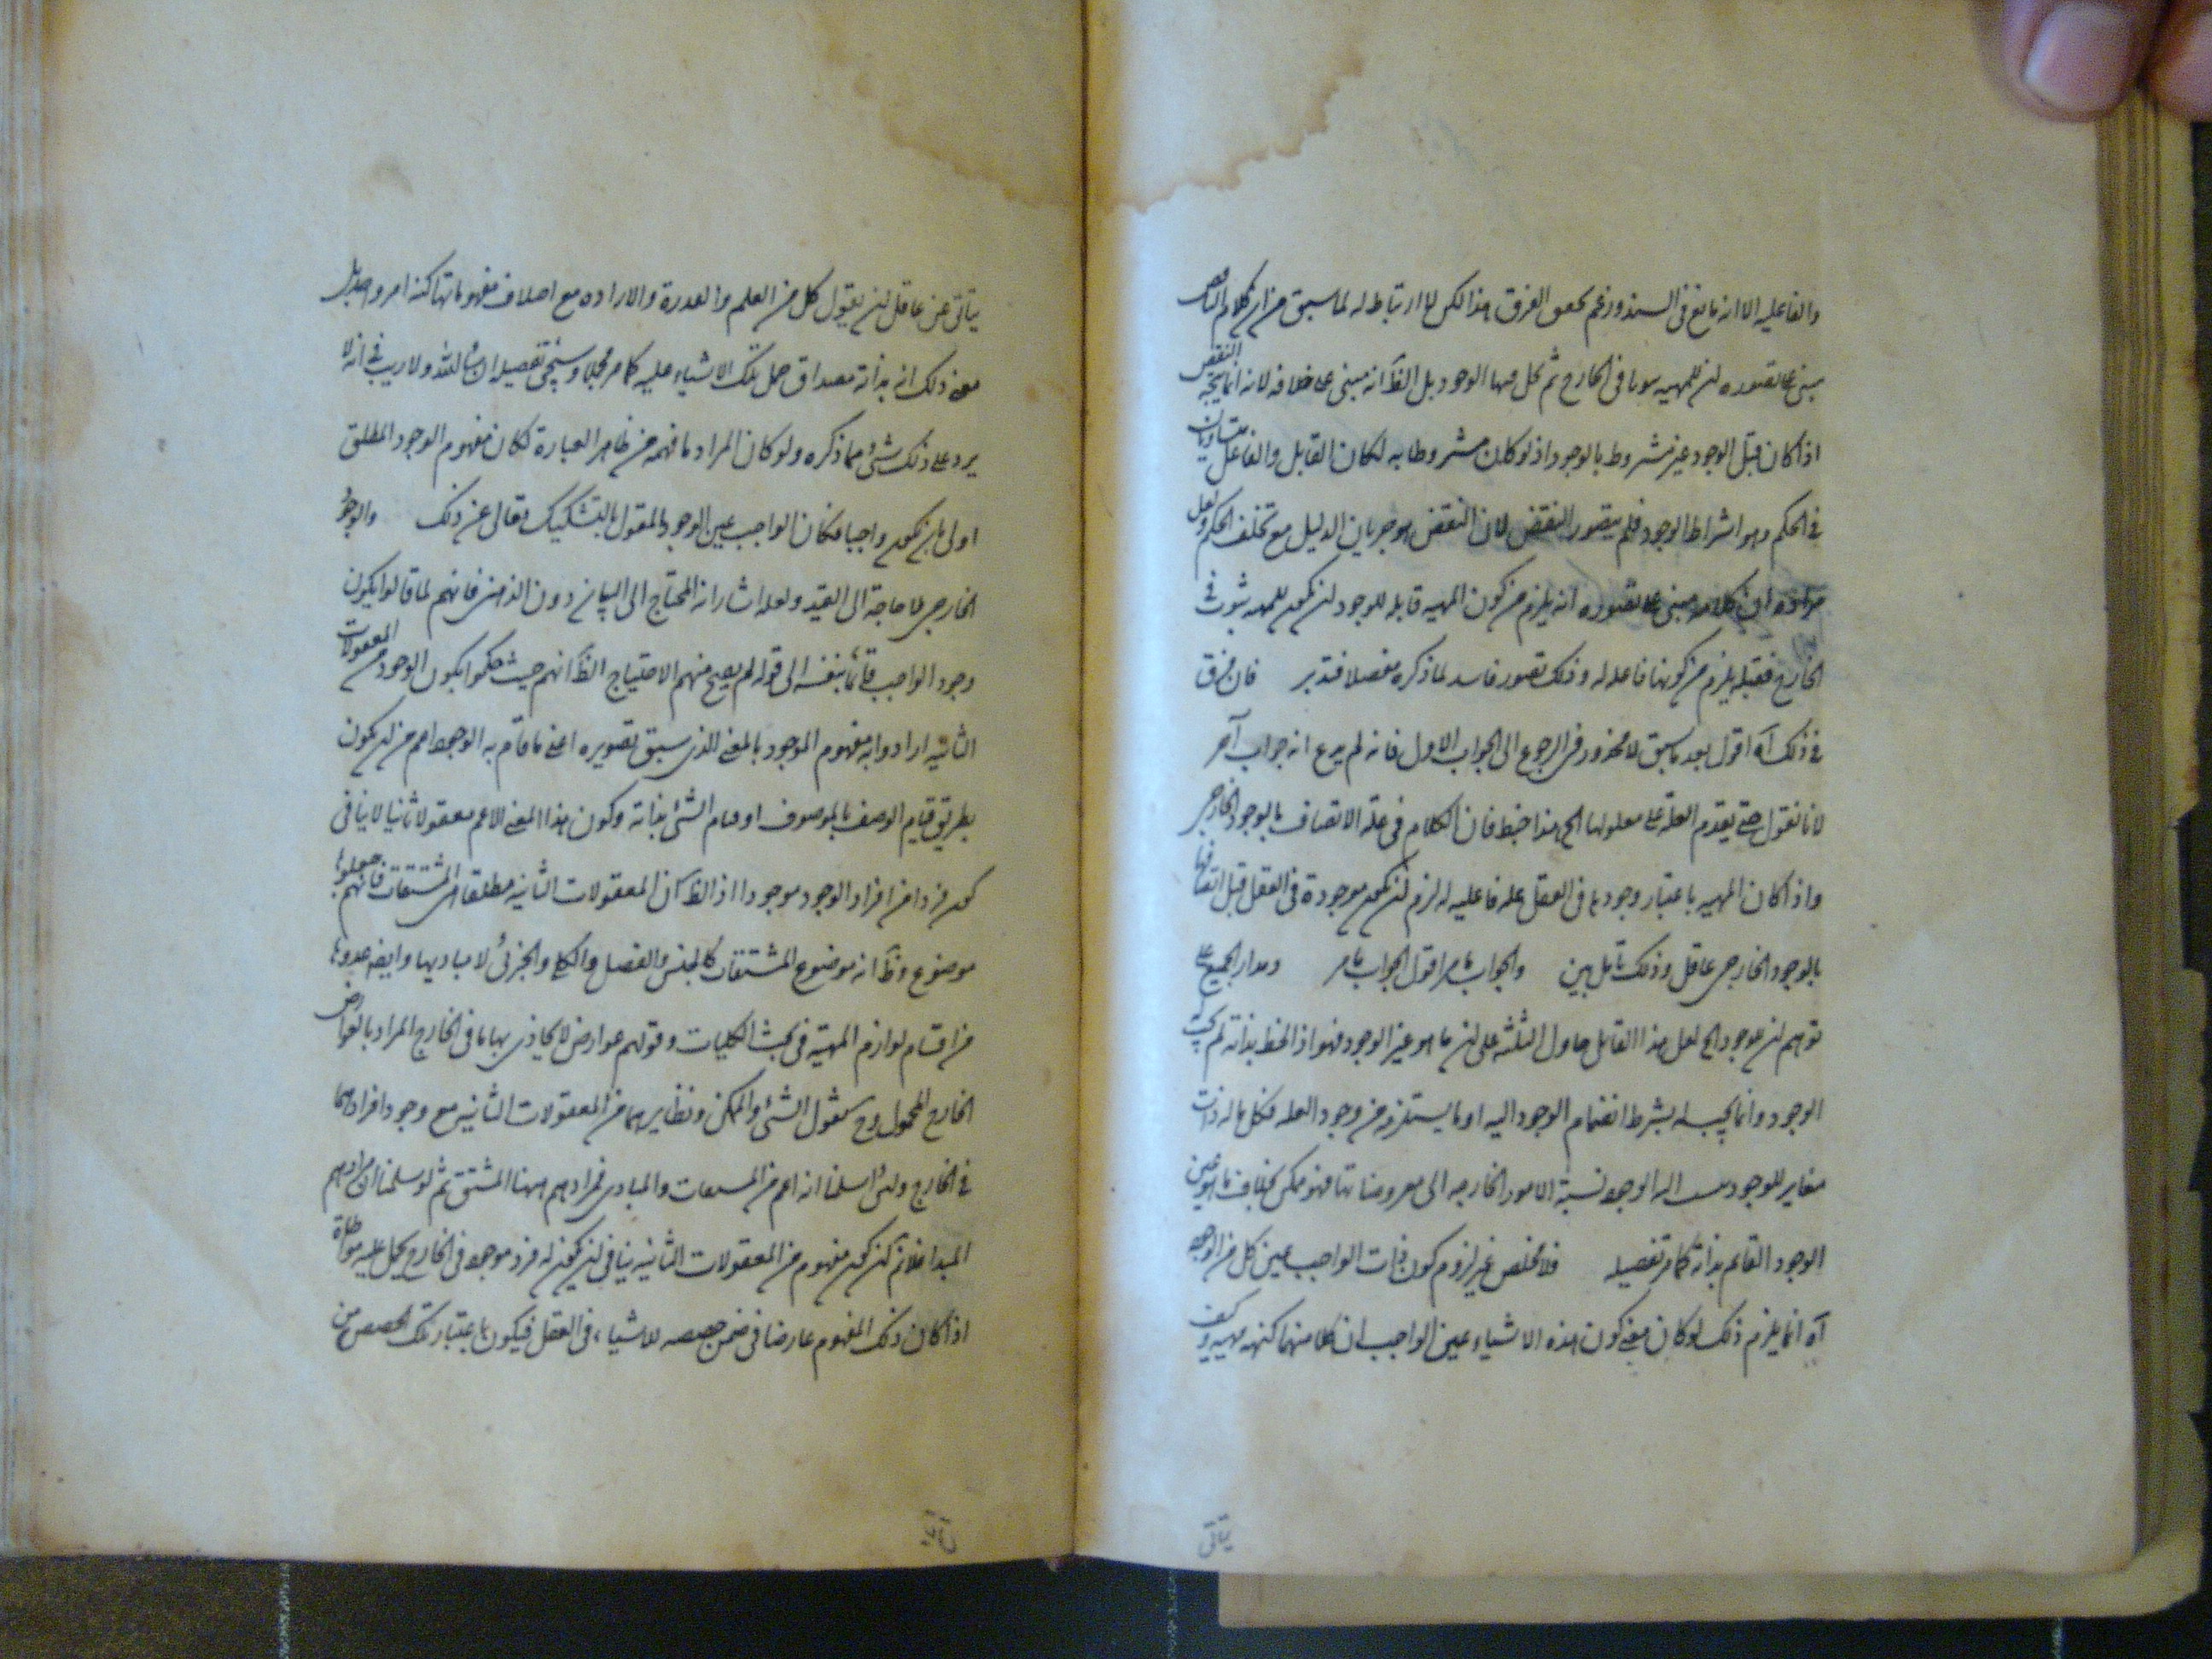 والفاعلية الا انه مانع في السند وزعم الفرق هذا لكن لا ارتباط له لما سبق من ان كلام الناقض
مبني على تصوره ان للمهية في الخارج ثم يحل فيها الوجود بل الظ انه مبني على خلافه لانه انما يتجه النقض
اذا كان قبل الوجود غير مشروط بالوجود اذ لو كان مشروطا به لكان القابل والفاعل متساويان
في الحكم وهو اشتراط الوجود فلم يتصور النقض لان النقض هو جريان الدليل مع تخلف الحكم ولعل
مراده ان كلامه مبني على تصوره انه يلزم من كون المهية قابلة للوجود ان يكون للمهية ثبوت في
الخارج فقبله يلزم من كونها فاعلة له وذلك تصور فاسد لما ذكره مفصلا فتدبر فان فرق
في ذلك آه اقول بعد ما سبق لا محذور في الرجوع الى الجواب الاول فانه لم يدع انه جواب آخر
لانا نقول حتى يقدم العلة على معلولها الخ هذا خبط فان الكلام في علة الاتصاف بالوجود الخارجي
واذا كان المهية باعتبار وجودها في العقل علة فاعلية له لزم ان يكون موجودة في العقل قبل اتصافها
بالوجود الخارجي عاقل وذلك بين والجواب ما مر اقول الجواب ما مر ومدار الجميع على
توهم ان موجود الخ لعل هذا القائل حاول التنبيه على ان ما هو غير الوجود فهو اذا لحظ بذاته لم يجب له
الوجود وانما يجب له بشرط انضمام الوجود اليه او ما يستلزمه من وجود العلة فكل ما له ذات
مغاير للوجود اليه الوجود نسبة الامور الخارجية الى معروضاتها فهو ممكن بخلاف ما هو عين
الوجود القائم بذاته كما مر تفصيله فلا مخلص عن لزوم كون ذات الواجب عين كل من الوجود
آه انما يلزم ذلك لو كان معنى كون هذه الاشياء عين الواجب ان كلا منهما كنهه مهية وكيف
يتأتى
يتأتى عن عاقل ان يقول كل من العلم والقدرة والارادة مع اختلاف مفهوماتها كنه امر واحد بل
معنى ذلك انه بذاته مصداق حمل تلك الاشياء عليه كما مر مجملا وسيجئ تفصيله ان شاء الله ولا ريب في انه لا
يرد على ذلك شئ مما ذكره ولو كان المراد ما فهمه من ظاهر العبارة لكان مفهوم الوجود المطلق
اولى بان يكون واجبا فكان الواجب عين الوجود المقول بالتشكيك تعالى عن ذلك والوجود
الخارجي لا حاجة الى القيد ولعله اشار انه المحتاج الى البيان دون الذهني فانهم لما قالوا بكون
وجود الواجب قائما بنفسه الى قوله لم يصح منهم الاحتياج الظ انهم حيث حكموا بكون الوجود من المعقولات
الثانية ارادوا به مفهوم الموجود بالمعنى الذي سبق تصويره اعني ما قام به الوجود اعم من ان يكون
بطريق قيام الوصف بالموصوف او قيام الشئ بذاته وكون هذا المعنى الاعم معقولا ثانيا لا ينافي
كون فرد من افراد الوجود موجودا اذ الظ ان المعقولات الثانية مطلقا هي المشتقات فانهم جعلوها
موضوع وظ انه موضوع المشتقات كالجنس والفصل والكلي والجزئي لا مباديها وايضا عدوها
من اقسام لوازم المهية في بحث الكليات وقولهم عوارض لا يحاذى بها ما في الخارج المراد بالعوارض
الخارج المحمول وح الشئ والممكن ونظايرهما من المعقولات الثانية مع وجود افرادهما
في الخارج ولئن سلمنا انه اعم من المشتقات والمبادي فمرادهم ههنا المشتق ثم لو سلمنا ان مرادهم
المبدا فلا نم ان كون مفهوم من المعقولات الثانية ينافي ان يكون له فرد موجود في الخارج يحمل عليه مواطاة
اذا كان ذلك المفهوم عارضا في ضمن حصصه للاشياء في العقل فيكون باعتبار تلك الحصص من